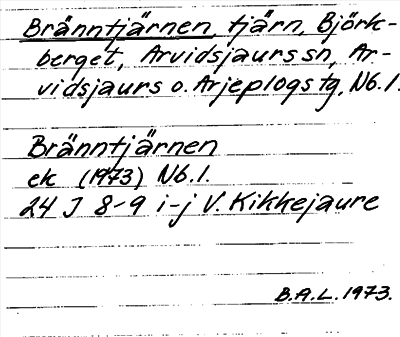 Bränntjärnen, tjärn, Björk-
berget, Arvidsjaurs sn, Ar-
vidsjaurs o. Arjeplogs tg, Nb. l.
Bränntjärnen
ek (1973) Nb. l.
24 J 8-9 i-j V. Kikkejaure
B.A.L. 1973.